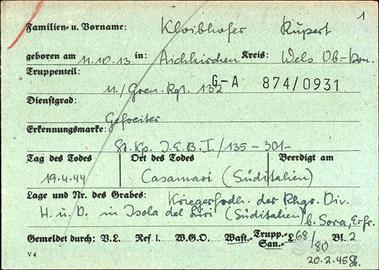 1
Familien- u. Vorname: Kloibhofer Rupert
geboren am 11.10.13 in: Aichkirchen Kreis: Wels Ob-Don.
Truppenteil: 11/Gren.Rgt. 132 G-A 874/0931
Dienstgrad: Gefreiter
Erkennungsmarke: St. Kp. J.E.B. I/135 -301-
Tag des Todes Ort des Todes Beerdigt am
19.4.44 Casamari (Süditalien)
Lage und Nr. des Grabes: Kriegerfrdh. der Division
H. u. D. in Isola del Liri (Süditalien) b. Sora, Erfr.
Gemeldet durch: V.L. Ref I. W.G.O. Wast.- Trupp.- San.- L 68/80 Bl. 2
V 4 20.2.45